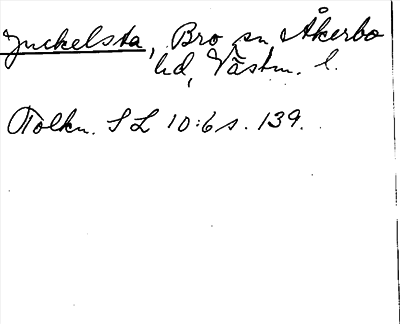 Junkelsta, Bro sn Åkerbo
hd, Västm. l.
Tolkn. SL 10:6 s. 139.